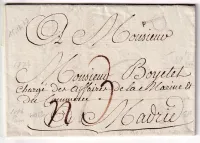 A Monsieur
Monsieur Boyetet
Chargé des Affaires de la Marine &
du Commerce
A Madrid